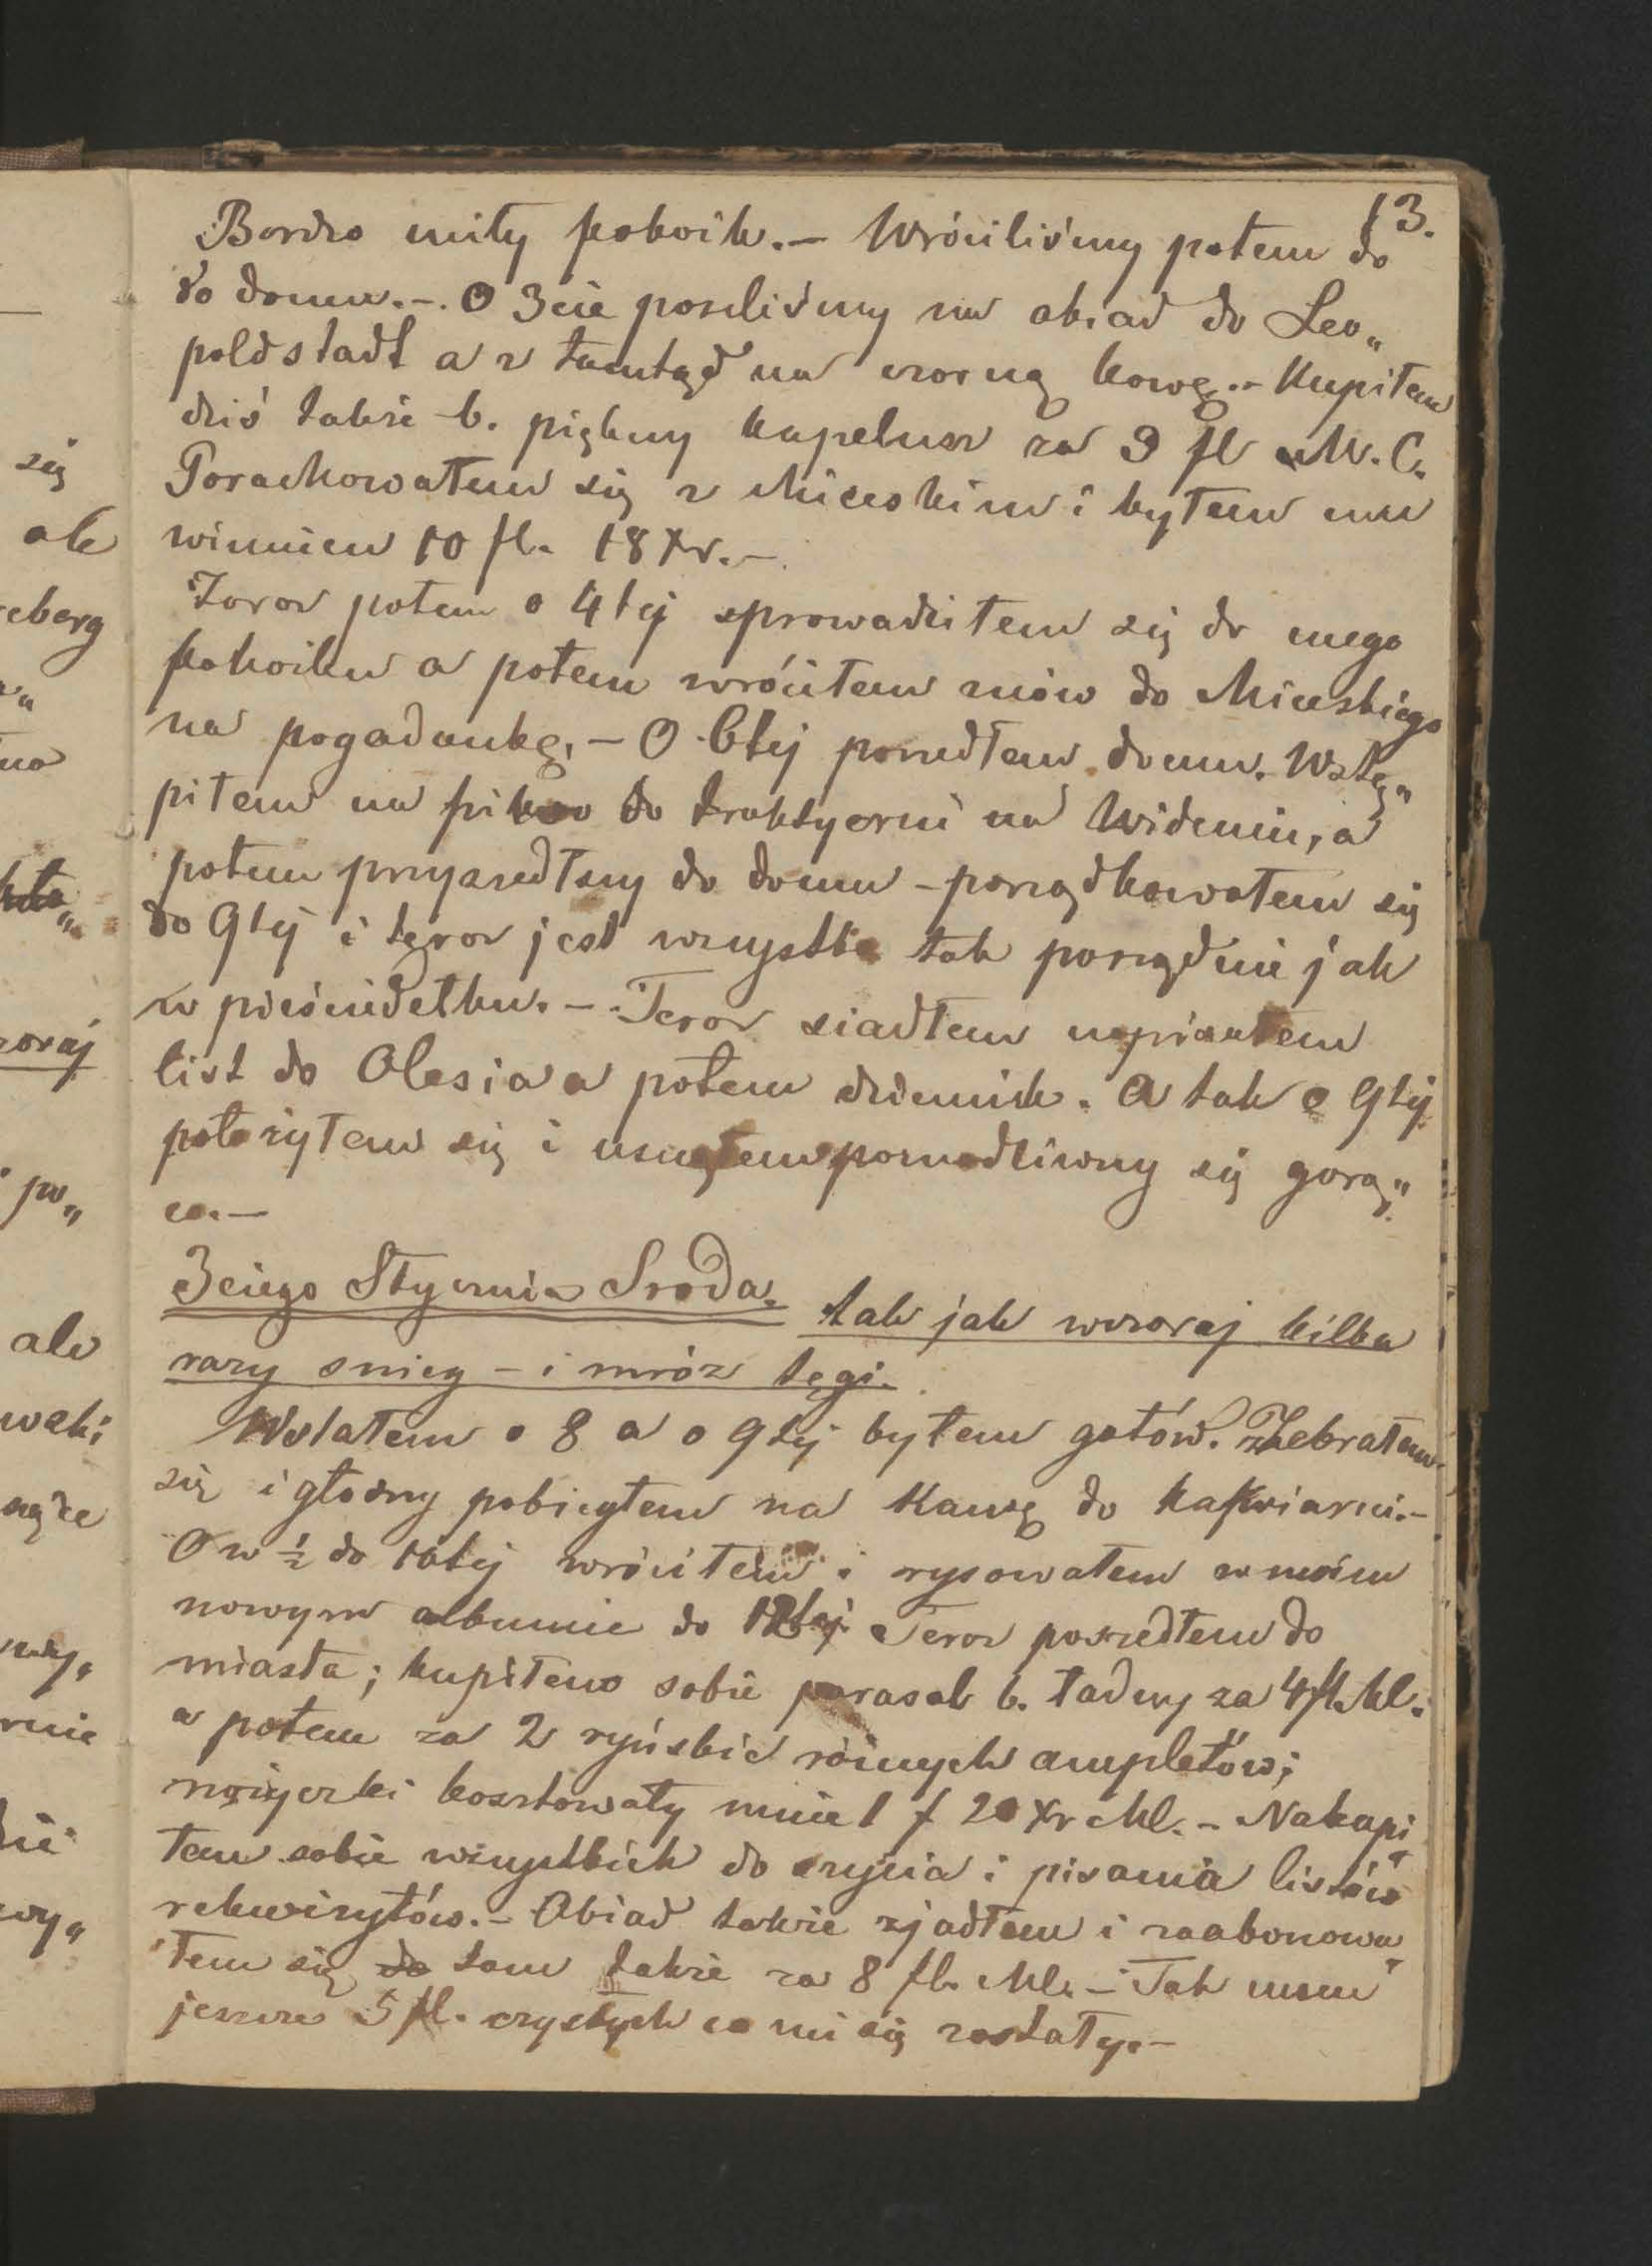 13.
Bardzo miły pokoik.— Wróciliśmy potem do
do domu.—. O 3cie poszliśmy na obiad do Leo„
poldstadt a z tamtąd na czarną kawę.— Kupiłem
dziś także b. piękny kapelusz za 3 fl M. C.
Porachowałem się z Miceskim i byłem mu
winnien 10 fl. 18 Xr.—
Zaraz potem o 4tej sprowadziłem się do mego
pokoiku a potem wróciłem znów do Miceskiego
na pogadankę,— O 6tej poszedłem domu. Wstą„
piłem na piwo do traktyerni na Widemiu, a
potem przyszedłszy do domu — porządkowałem się
do 9tej i teraz jest wszystko tak porządnie jak
w pieścidełku.— Teraz siadłem napisałem
list do Olesia a potem dziennik. A tak o 9tej
położyłem się i usnąłem pomodliwszy się gorą„
co.—
3ciego Stycznia Sroda. tak jak wczoraj kilka
razy snieg — i mróz tęgi.
Wstałem o 8 a o 9tej byłem gotów. Zebrałem
się i głodny pobiegłem na Kawę do kafwiarni.—
O w ½ do 10tej wróciłem i rysowałem w moim
nowym albumie do 12tej Teraz poszedłem do
miasta; kupiłem sobie parasol b. ładny za 4 fl. Ml.
a potem za 2 ryńskie różnych ampletów;
nożyczki kosztowały mnie 1 f 20 Xr Ml.— Nakupi„
łem sobie wszystkich do szycia i pisania listów
rekwizytów.— Obiad także zjadłem i zaabonowa„
łem się tam także za 8 fl. Ml.— Tak mam
jeszcze 5 fl. czystych co mi się zostały.—
się
ale
eberg
no
zoraj
po„
ale
waki
nie
wy„